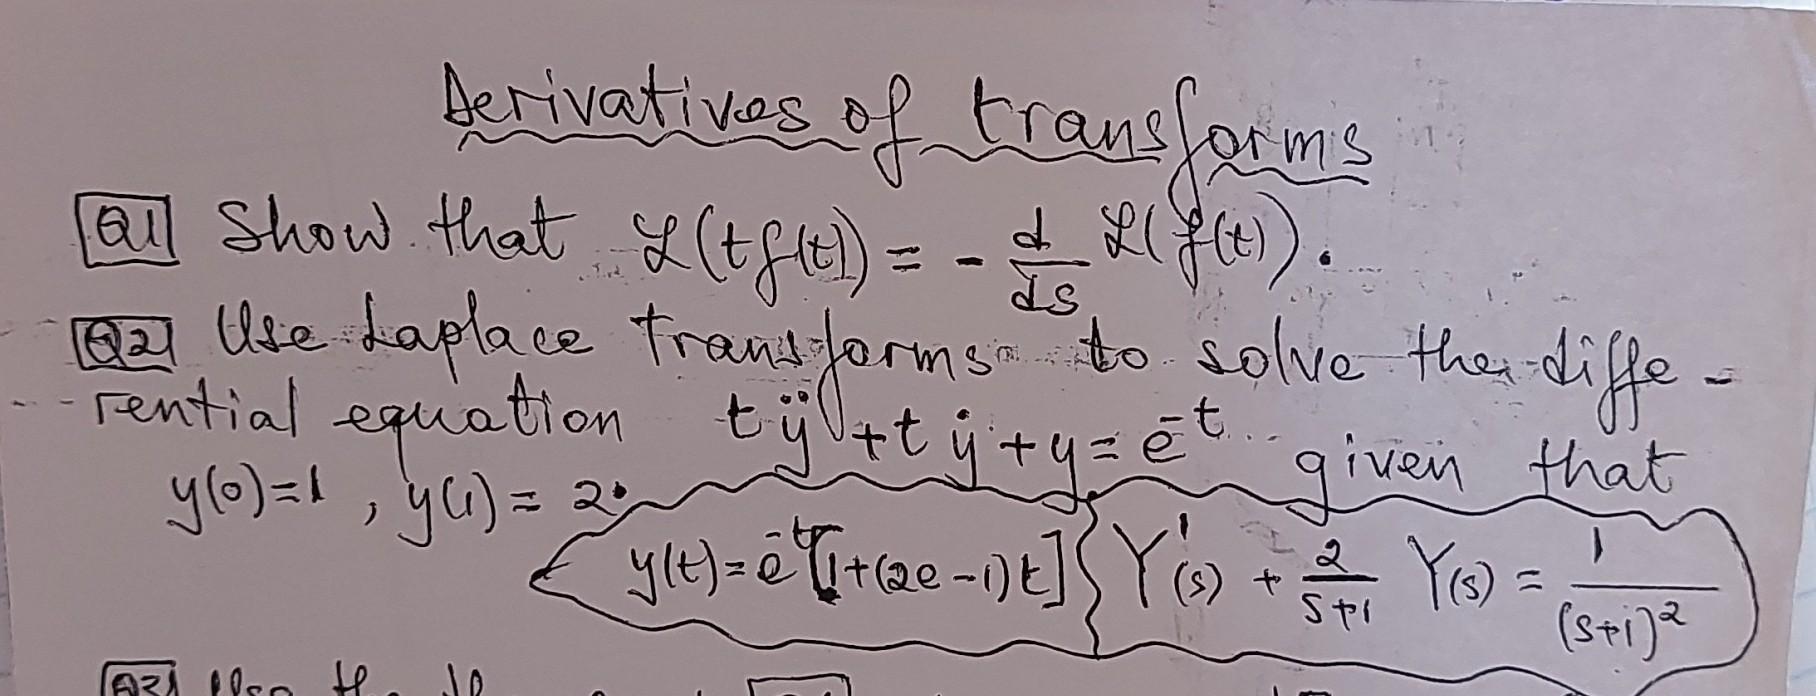 Derivatives of transforms
Q1 Show that ℒ(tf(t)) = - d/ds ℒ(f(t)).
Q2 Use Laplace transforms to solve the diffe-
rential equation tÿ + tẏ + y = e^-t given that
y(0)=1, y(1) = 2.
y(t) = e^-t[1+(2e-1)t] Y'(s) + 2/(s+1) Y(s) = 1/(s+1)^2
Q3 Use the